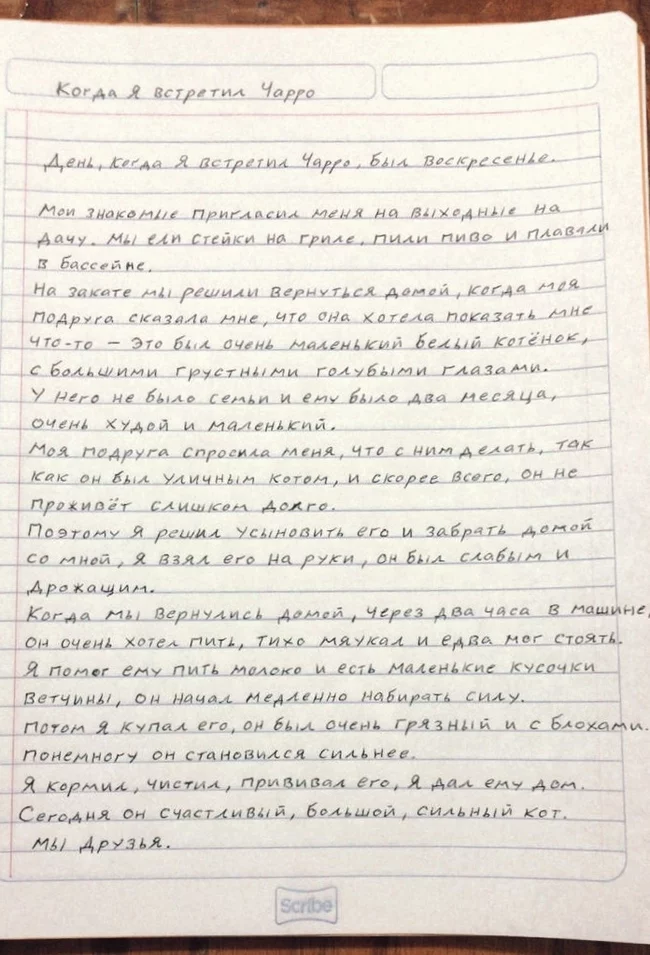 Когда я встретил Чарро
День, когда я встретил Чарро, был воскресенье.
Мои знакомые пригласил меня на выходные на
дачу. Мы ели стейки на гриле, пили пиво и плавали
в бассейне.
На закате мы решили вернуться домой, когда моя
подруга сказала мне, что она хотела показать мне
что-то — это был очень маленький белый котёнок,
с большими грустными голубыми глазами.
У него не было семьи и ему было два месяца,
очень худой и маленький.
Моя подруга спросила меня, что с ним делать, так
как он был уличным котом, и скорее всего, он не
проживёт слишком долго.
Поэтому я решил усыновить его и забрать домой
со мной, я взял его на руки, он был слабым и
дрожащим.
Когда мы вернулись домой, через два часа в машине,
он очень хотел пить, тихо мяукал и едва мог стоять.
Я помог ему пить молоко и есть маленькие кусочки
ветчины, он начал медленно набирать силу.
Потом я купал его, он был очень грязный и с блохами.
Понемногу он становился сильнее.
Я кормил, чистил, прививал его, я дал ему дом.
Сегодня он счастливый, большой, сильный кот.
Мы друзья.
Scribe